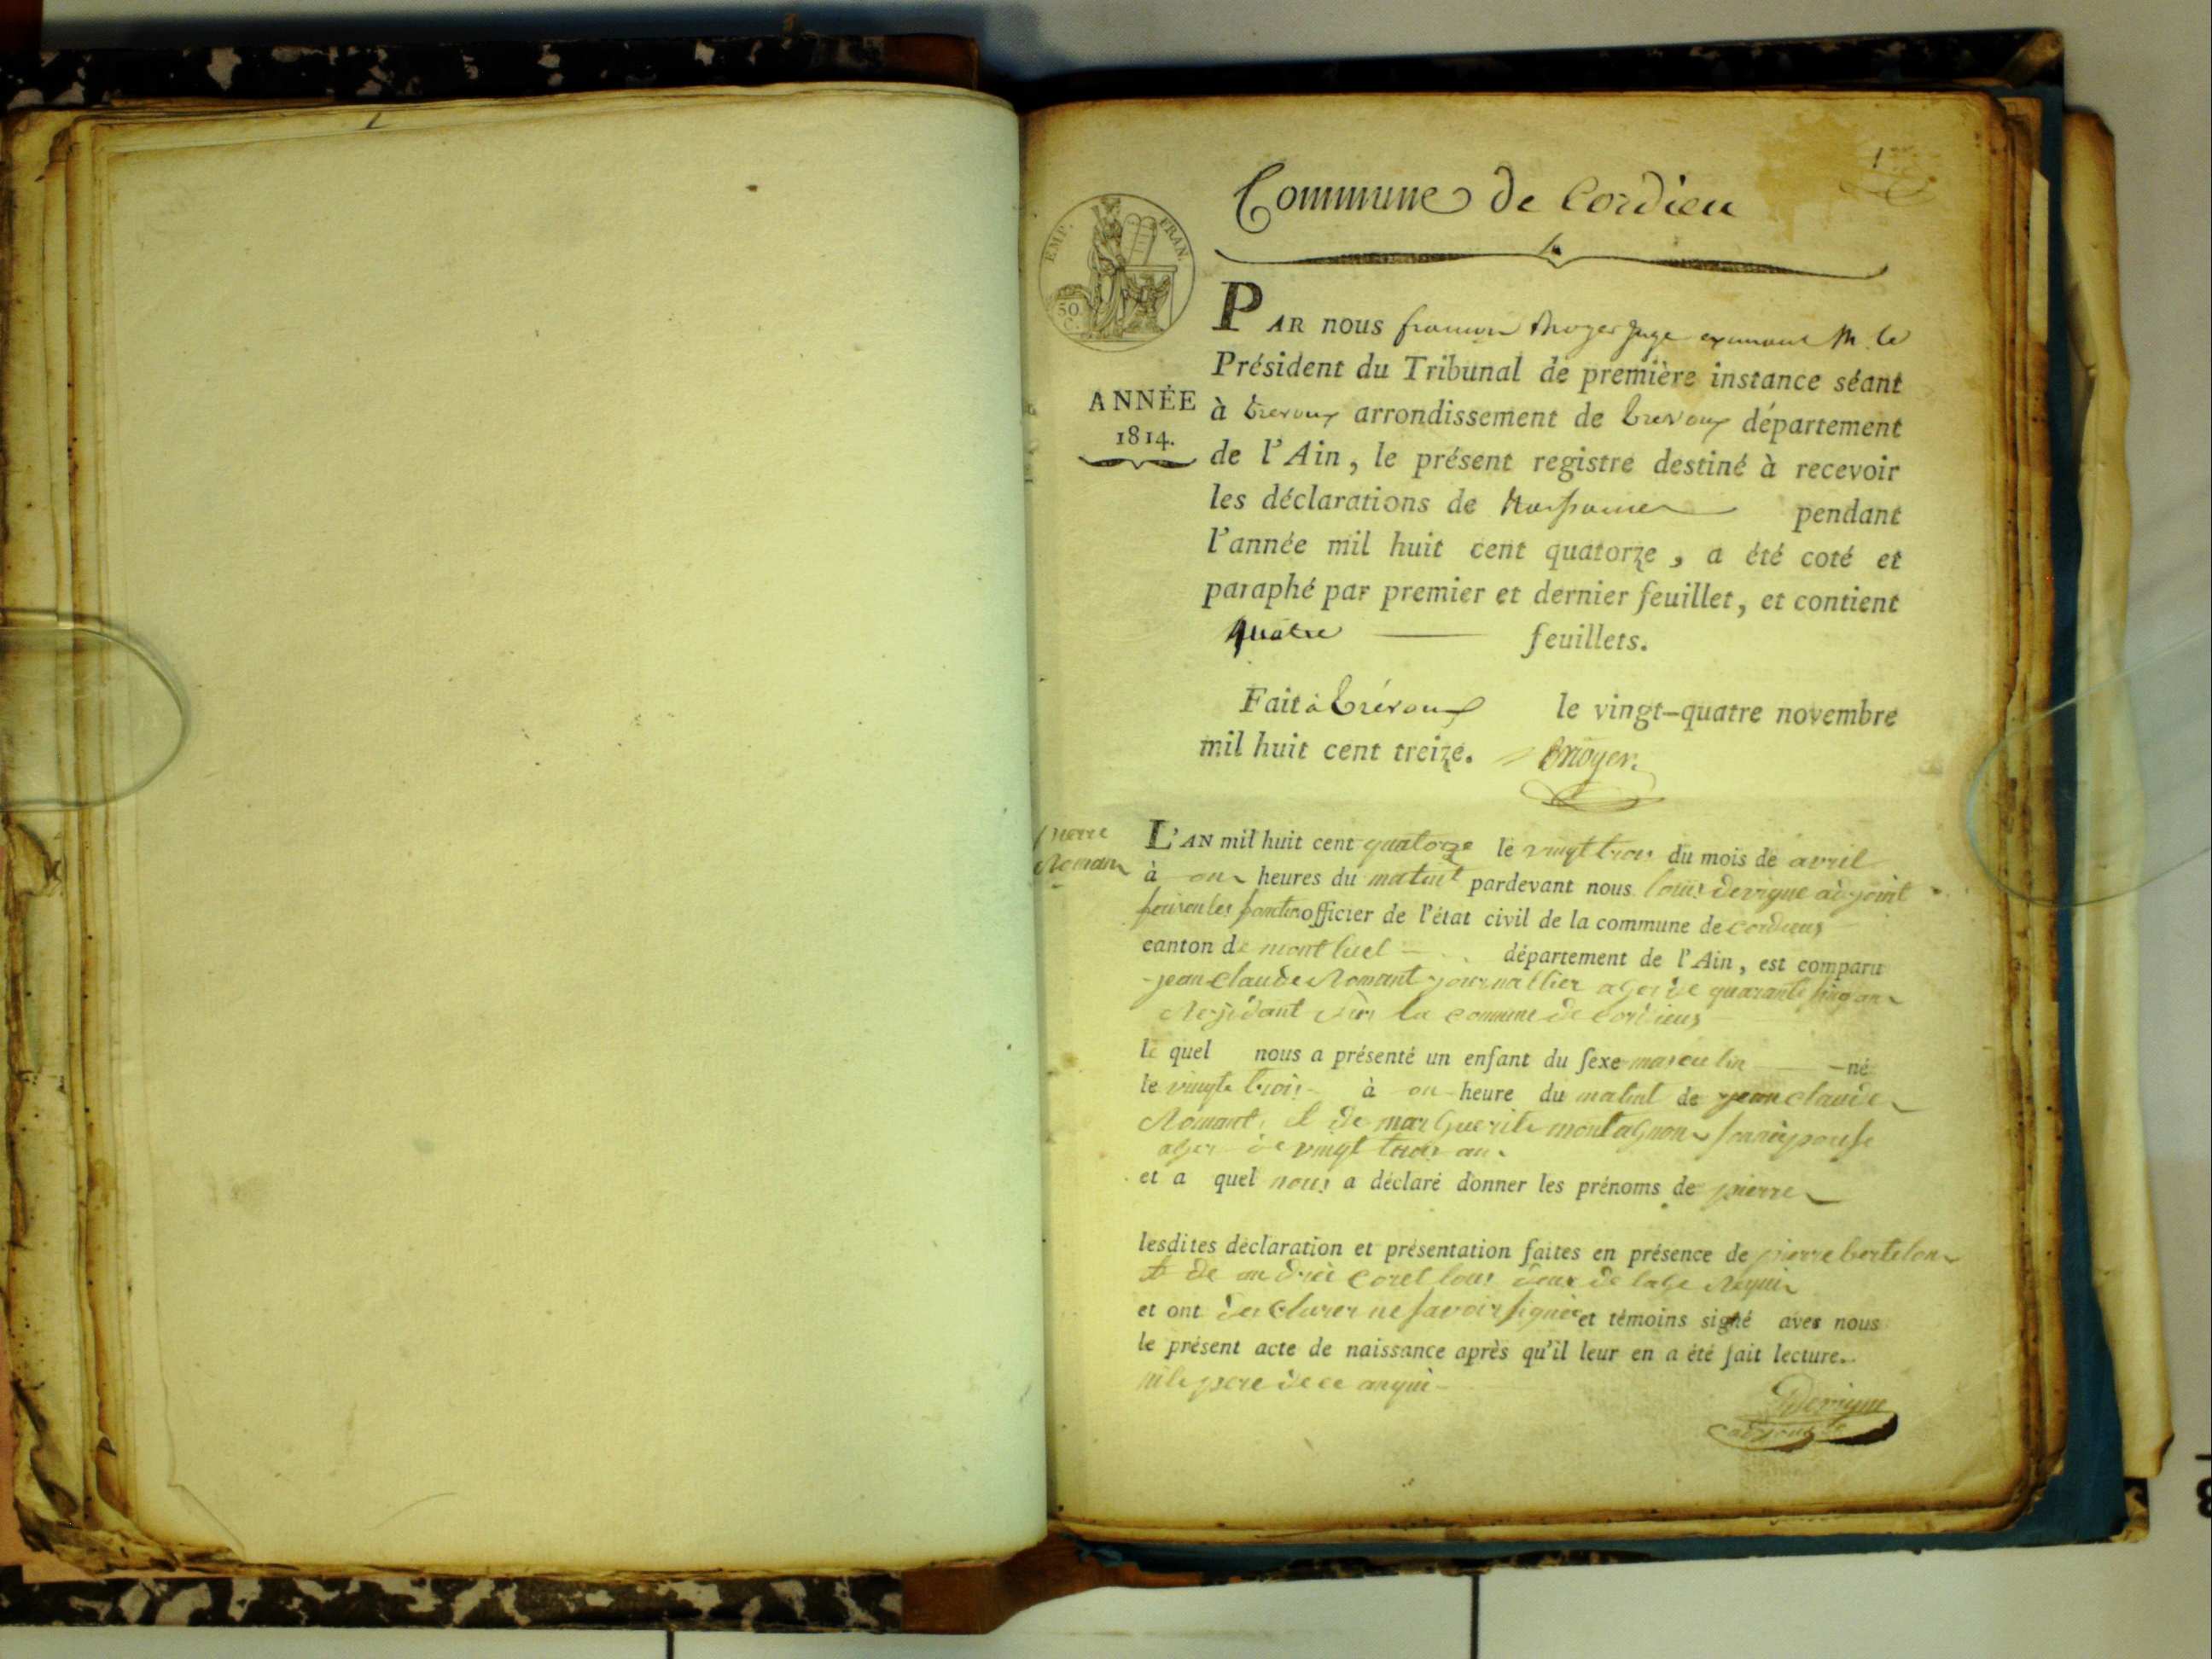 1er
Commune de Cordieu
EMP. FRAN.
50
C.
PAR nous Juge M. le
Président du Tribunal de première instance séant
ANNÉE
1814.
à trevoux arrondissement de trevoux département
de l'Ain, le présent registre destiné à recevoir
les déclarations de Naissances pendant
l'année mil huit cent quatorze, a été coté et
paraphé par premier et dernier feuillet, et contient
quatre feuillets.
Fait à trévoux le vingt-quatre novembre
mil huit cent treize.
pierre
Roman
L'AN mil huit cent quatorze le vingt trois du mois de avril
à on heures du matint pardevant nous louis devigne adjoint
officier de l'état civil de la commune de cordieux
canton de montluel département de l'Ain, est comparu
jean claude Romant journallier de quarante sinq an
Resident la commune de cordieux
le quel nous a présenté un enfant du sexe masculin né
le vingte trois à on heure du matint de jean claude
Romant, et de marguerite montagnon son
de vingt trois an
et a quel nous a déclaré donner les prénoms de pierre
lesdites déclaration et présentation faites en présence de pierre bertelon
de andrée coret tous deux de
et ont declarer ne savoir signée et témoins signé avec nous
le présent acte de naissance après qu'il leur en a été fait lecture.
ni le pere de ce
Devigne
adjoint